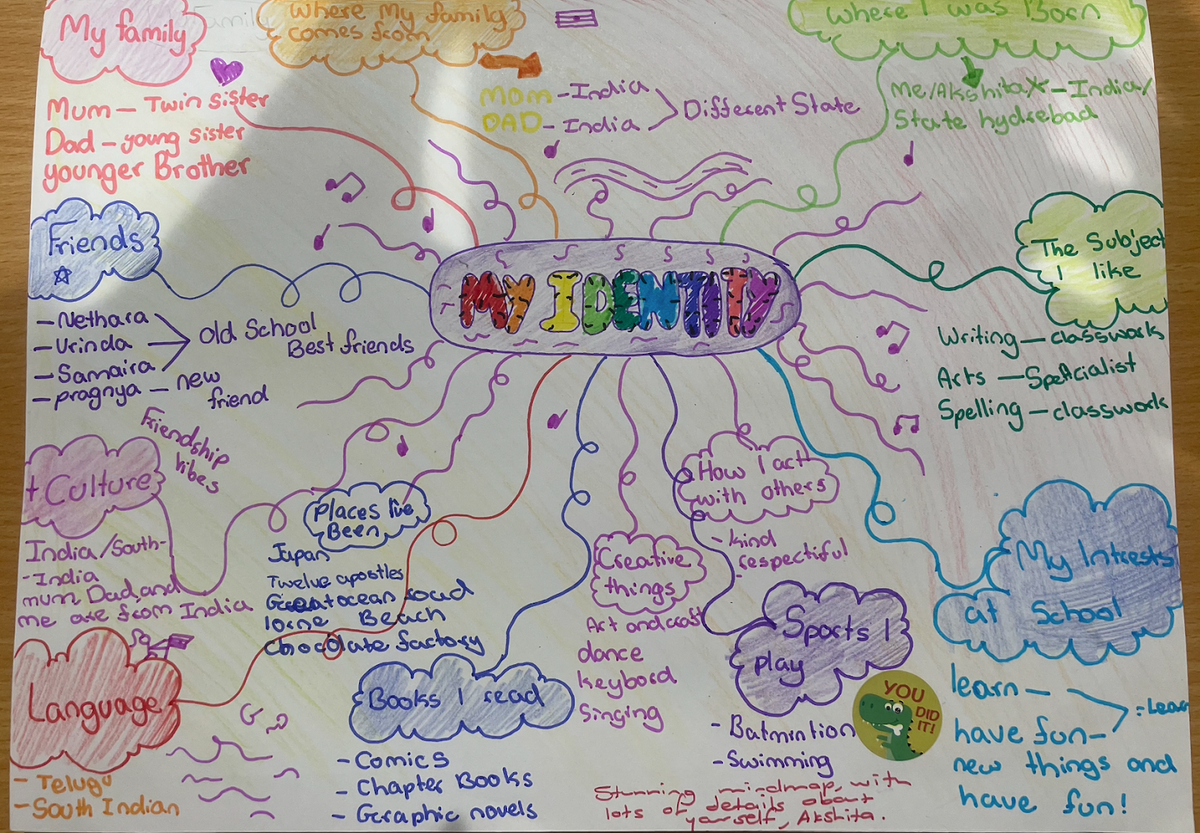 My family
Where My family
comes from
Where I was Born
Mum – Twin sister
Dad – young sister
younger Brother
MOM – India
DAD – India
Different State
Me/Akshita – India/
State hydrebad
Friends
MY IDENTITY
The Subject
I like
– Nethara
– Vrinda
– Samaira
– pragnya – new
friend
old School
Best friends
Writing – classwork
Arts – Speticialist
Spelling – classwork
Friendship
vibes
Culture
India/South-
-India
mum Dad and
me are from India
Places I've
Been
Japan
Twelve apostles
Great ocean roud
lorne Beach
chocolate factory
How I act
with others
- kind
- respectiful
Creative
things
Art and craft
dance
keybord
Singing
My Intrests
at School
learn –
have fun –
: Lear
new things and
have fun!
Sports I
play
- Batmintion
- Swimming
YOU
DID
IT!
Language
- Telugu
- South Indian
Books I read
- Comics
- Chapter Books
- Geraphic novels
Stunning mindmap, with
lots of details about
yourself, Akshita.